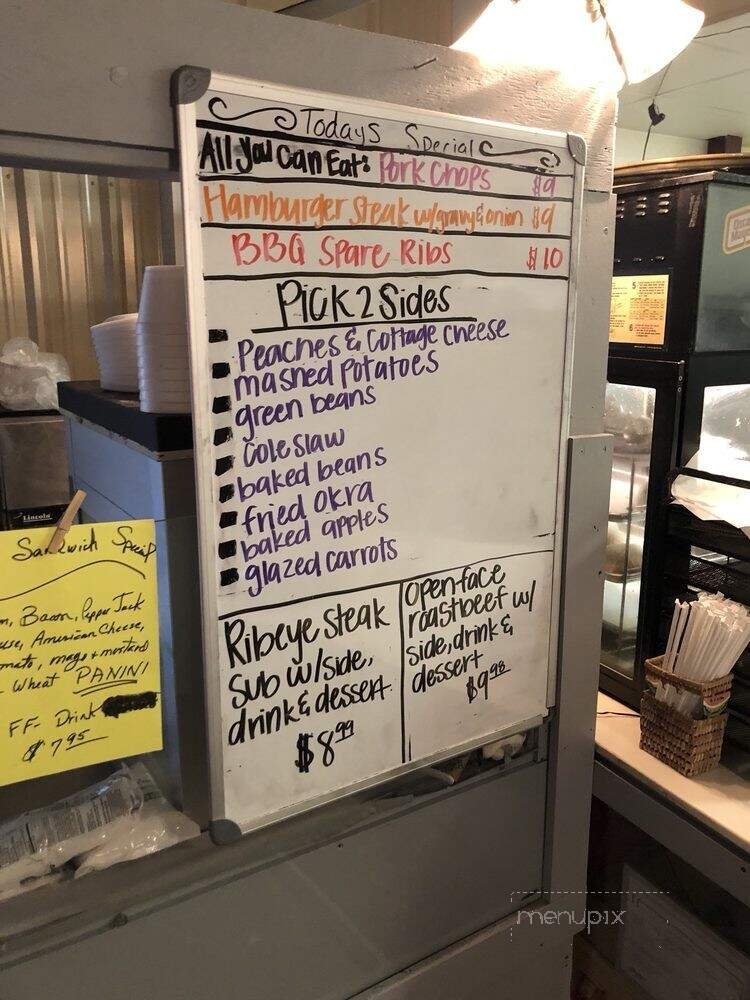 Todays Special
All You Can Eat: Pork Chops $9
Hamburger Steak w/gravy & onion $9
BBQ Spare Ribs $10
Pick 2 Sides
Peaches & Cottage cheese
mashed potatoes
green beans
Coleslaw
baked beans
fried okra
baked apples
glazed carrots
Ribeye Steak
Sub w/side,
drink & dessert
$8.99
Open-face
roastbeef w/
side, drink &
dessert
$9.98
Lincoln
Sandwich Special
Bacon, Pepper Jack
American Cheese,
mayo + mustard
Wheat PANINI
FF- Drink
$7.95
menupix